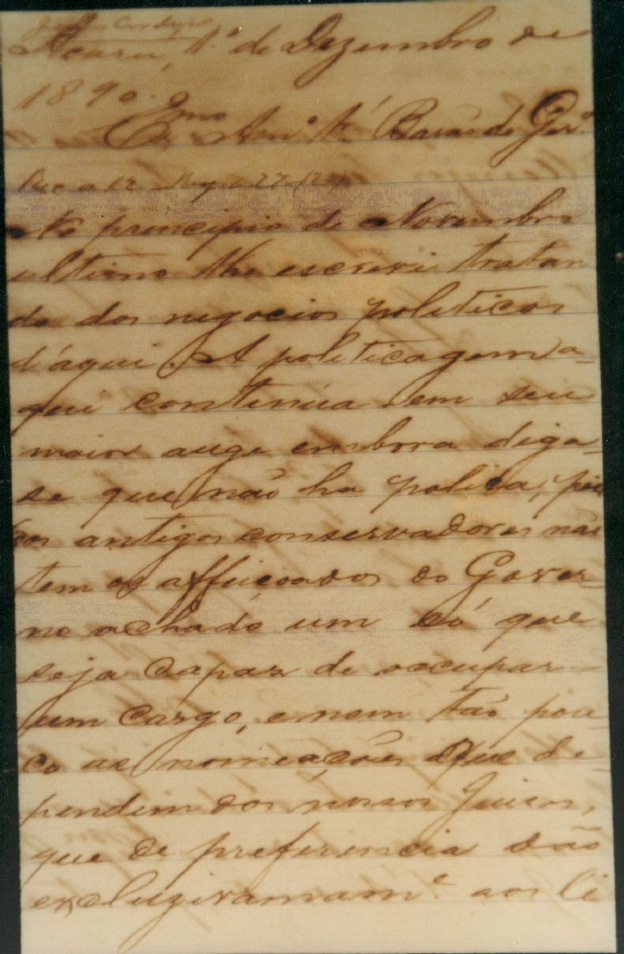 Acarú, 1º de Dezembro de
1890.
Exmo Amº Sr. Barão de
No principio de Novembro
ultimo lhe escrevi tratan
do dos negocios politicos
d'aqui. A politicagem a-
qui continúa em seu
maior auge embora diga-
se que não ha politica, pois
dos antigos conservadores não
tem os affeiçoados do Gover-
no achado um só que
seja capaz de occupar
um cargo, e nem tão pou
co as nomeações que de-
pendem dos nossos Juizes,
que de preferencia são
excluzivamamᵉ aos li